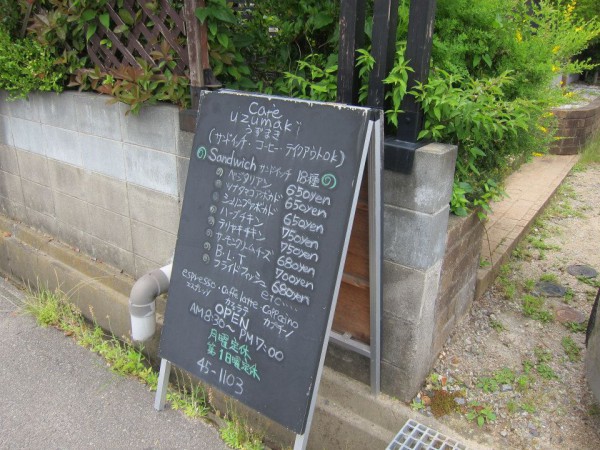 Cafe
UZUMAKI
うずまき
(サンドイッチ・コーヒー テイクアウトOK)
Sandwich サンドイッチ 18種
ベジタリアン 650yen
ツナタマゴアボカド 650yen
シュリンプアボカド 650yen
ハーブチキン 750yen
テリヤキチキン 750yen
サーモンクリームチーズ 680yen
B.L.T 700yen
フライドフィッシュ 680yen
ETC....
espresso・Caffe latte・Cappccino
エスプレッソ カフェラテ カプチィノ
OPEN
AM8:30~PM17:00
月曜定休
第1日曜定休
45-1103